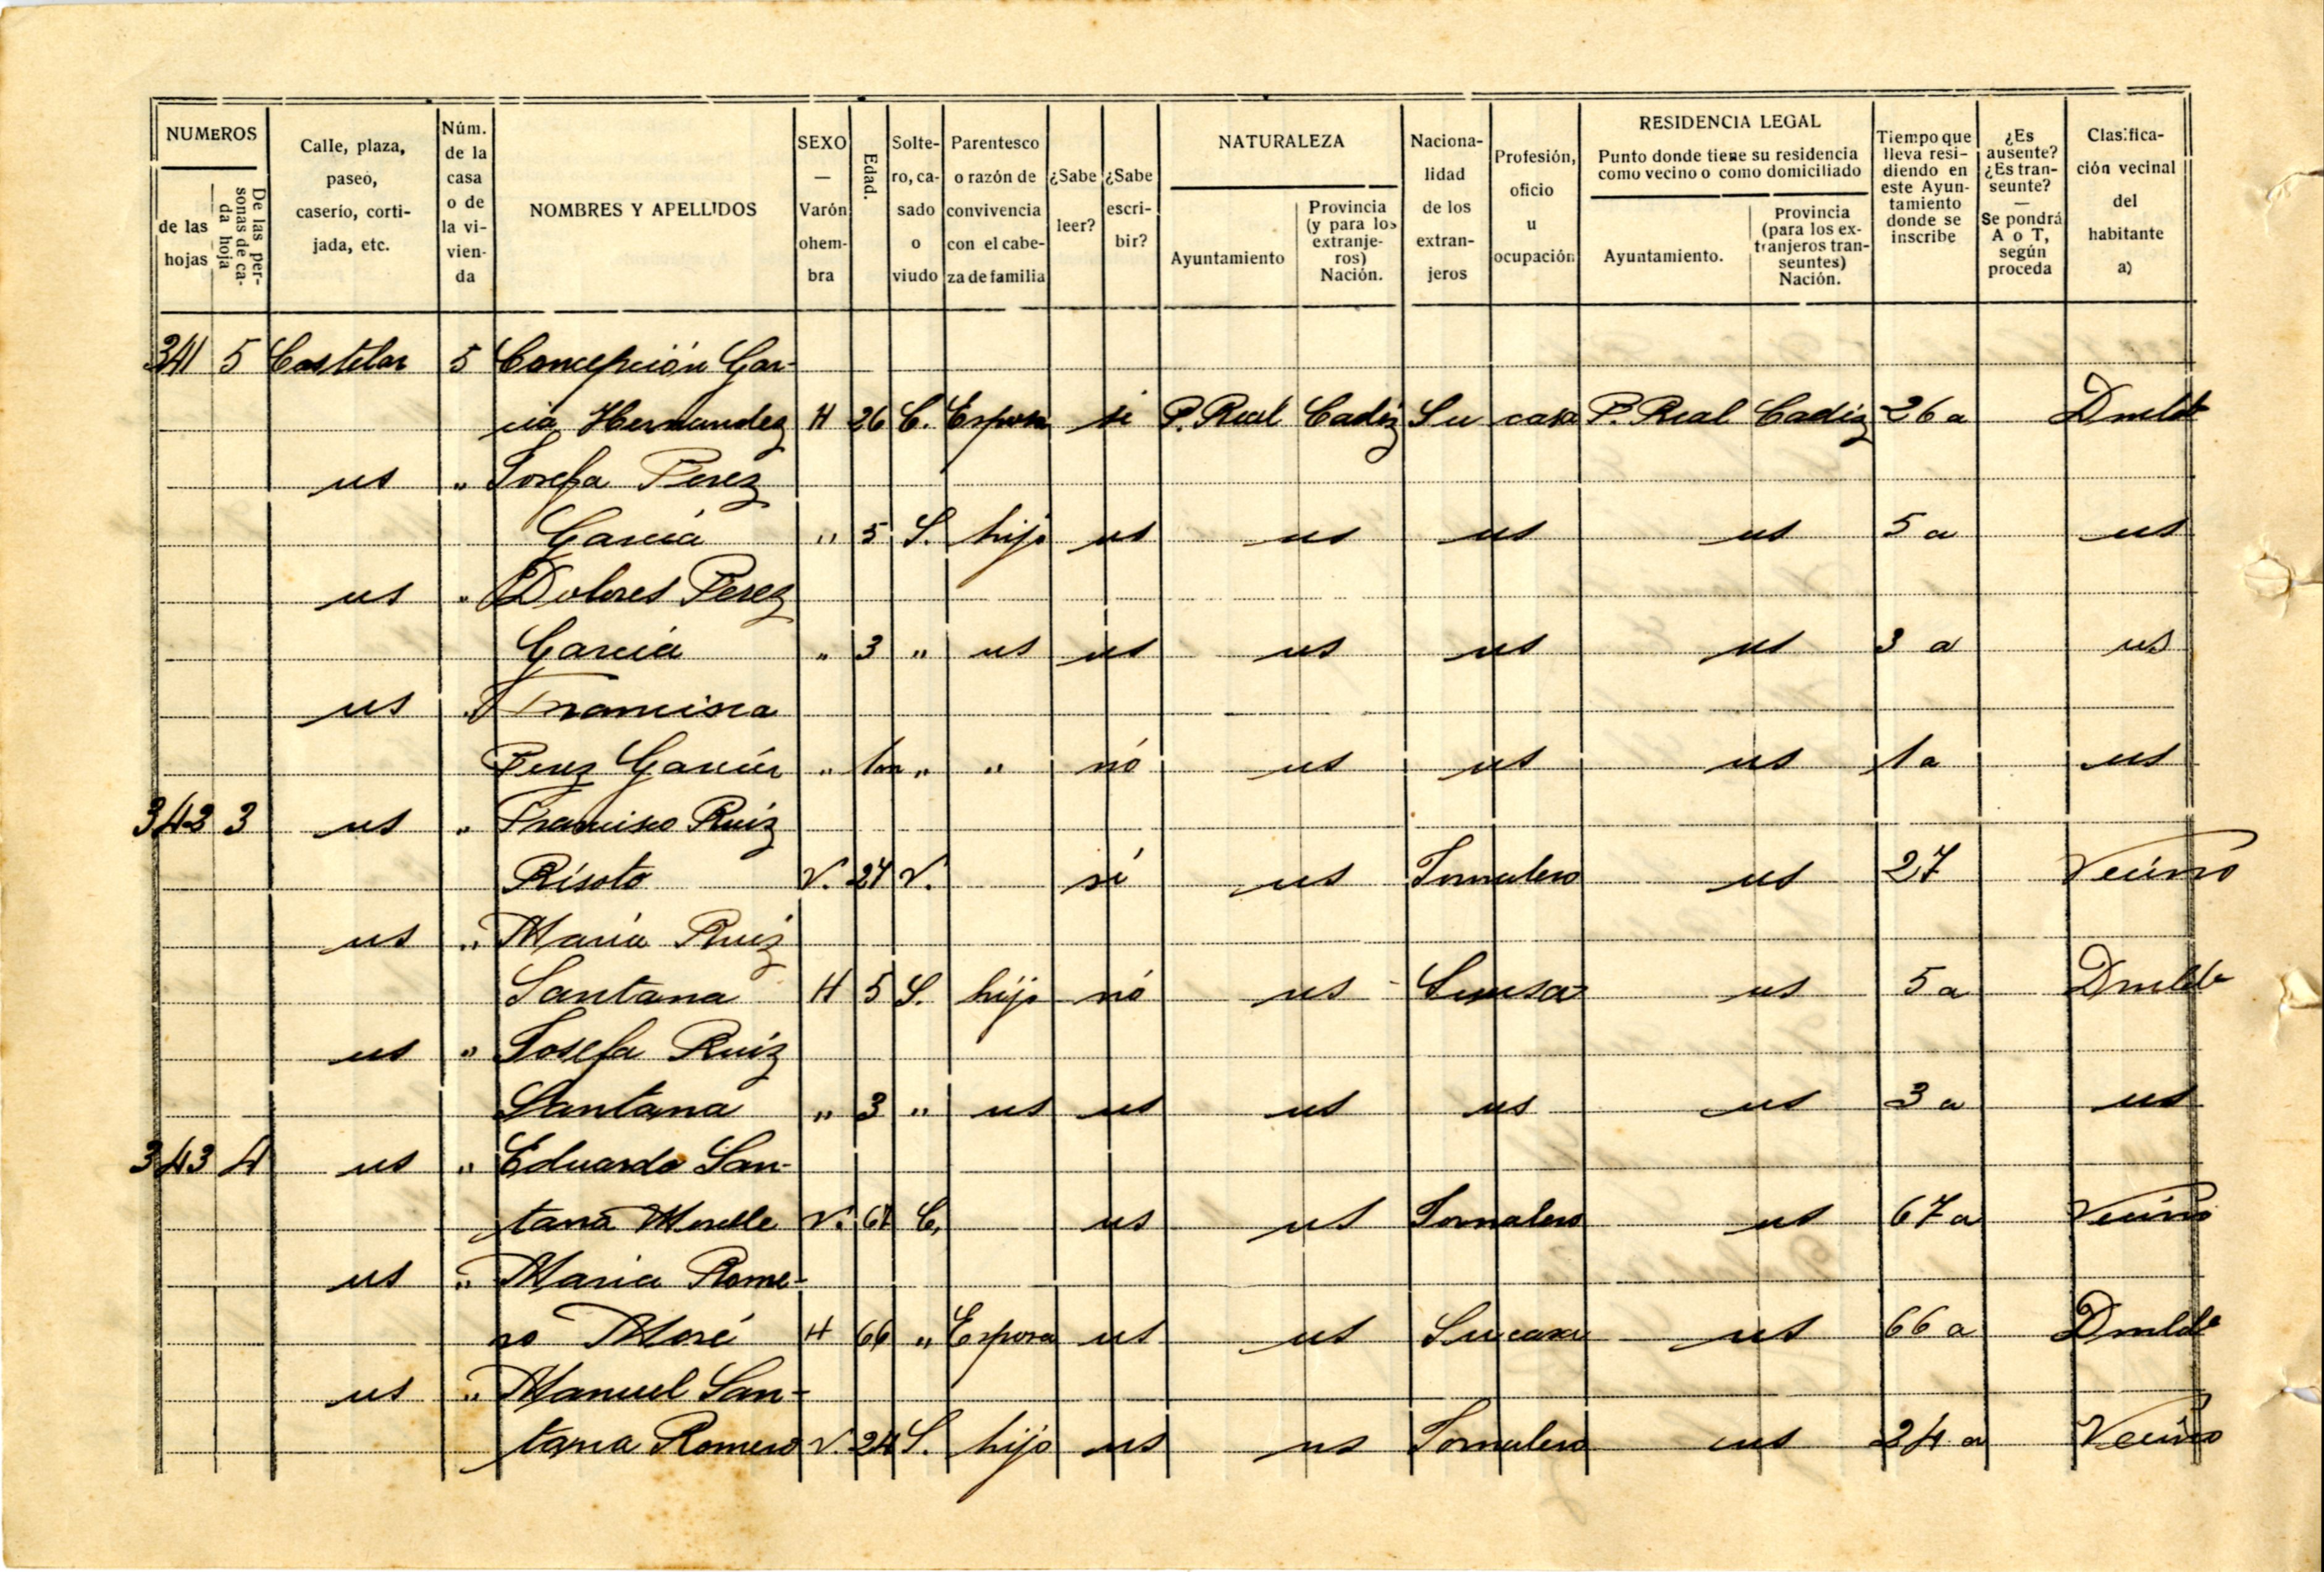 NUMEROS
de las hojas
De las personas de cada hoja
Calle, plaza, paseo, caserío, cortijada, etc.
Núm. de la casa o de la vivienda
NOMBRES Y APELLIDOS
SEXO — Varón ohembra
Edad.
Soltero, casado o viudo
Parentesco o razón de convivencia con el cabeza de familia
¿Sabe leer?
¿Sabe escribir?
NATURALEZA
Ayuntamiento
Provincia (y para los extranjeros) Nación.
Nacionalidad de los extranjeros
Profesión, oficio u ocupación
RESIDENCIA LEGAL
Punto donde tiene su residencia como vecino o como domiciliado
Ayuntamiento.
Provincia (para los extranjeros transeuntes) Nación.
Tiempo que lleva residiendo en este Ayuntamiento donde se inscribe
¿Es ausente? ¿Es transeunte? — Se pondrá A o T, según proceda
Clasificación vecinal del habitante a)
341 5 Castelar 5 Concepción Gar-
cia Hernandez H 26 C. Esposa si P. Real Cadiz Su casa P. Real Cadiz 26 a Dmldo
us " Josefa Perez
García " 5 S. hijo us us us us 5 a us
us " Dolores Perez
García " 3 " us us us us us 3 a us
us " Francisca
Perez García " 1 " " nó us us us 1 a us
342 3 us " Francisco Ruiz
Risoto V. 27 V. si us Jornalero us 27 Vecino
us " María Ruiz
Santana H 5 S. hijo nó us Su casa us 5 a Dmldo
us " Josefa Ruiz
Santana " 3 " us us us us us 3 a us
343 4 us " Eduardo San-
tana V. 67 C. us us Jornalero us 67 a Vecino
us " Maria Rome-
ro Moré H 66 " Esposa us us Su casa us 66 a Dmldo
us " Manuel San-
tana Romero V. 24 S. hijo us us Jornalero us 24 a Vecino